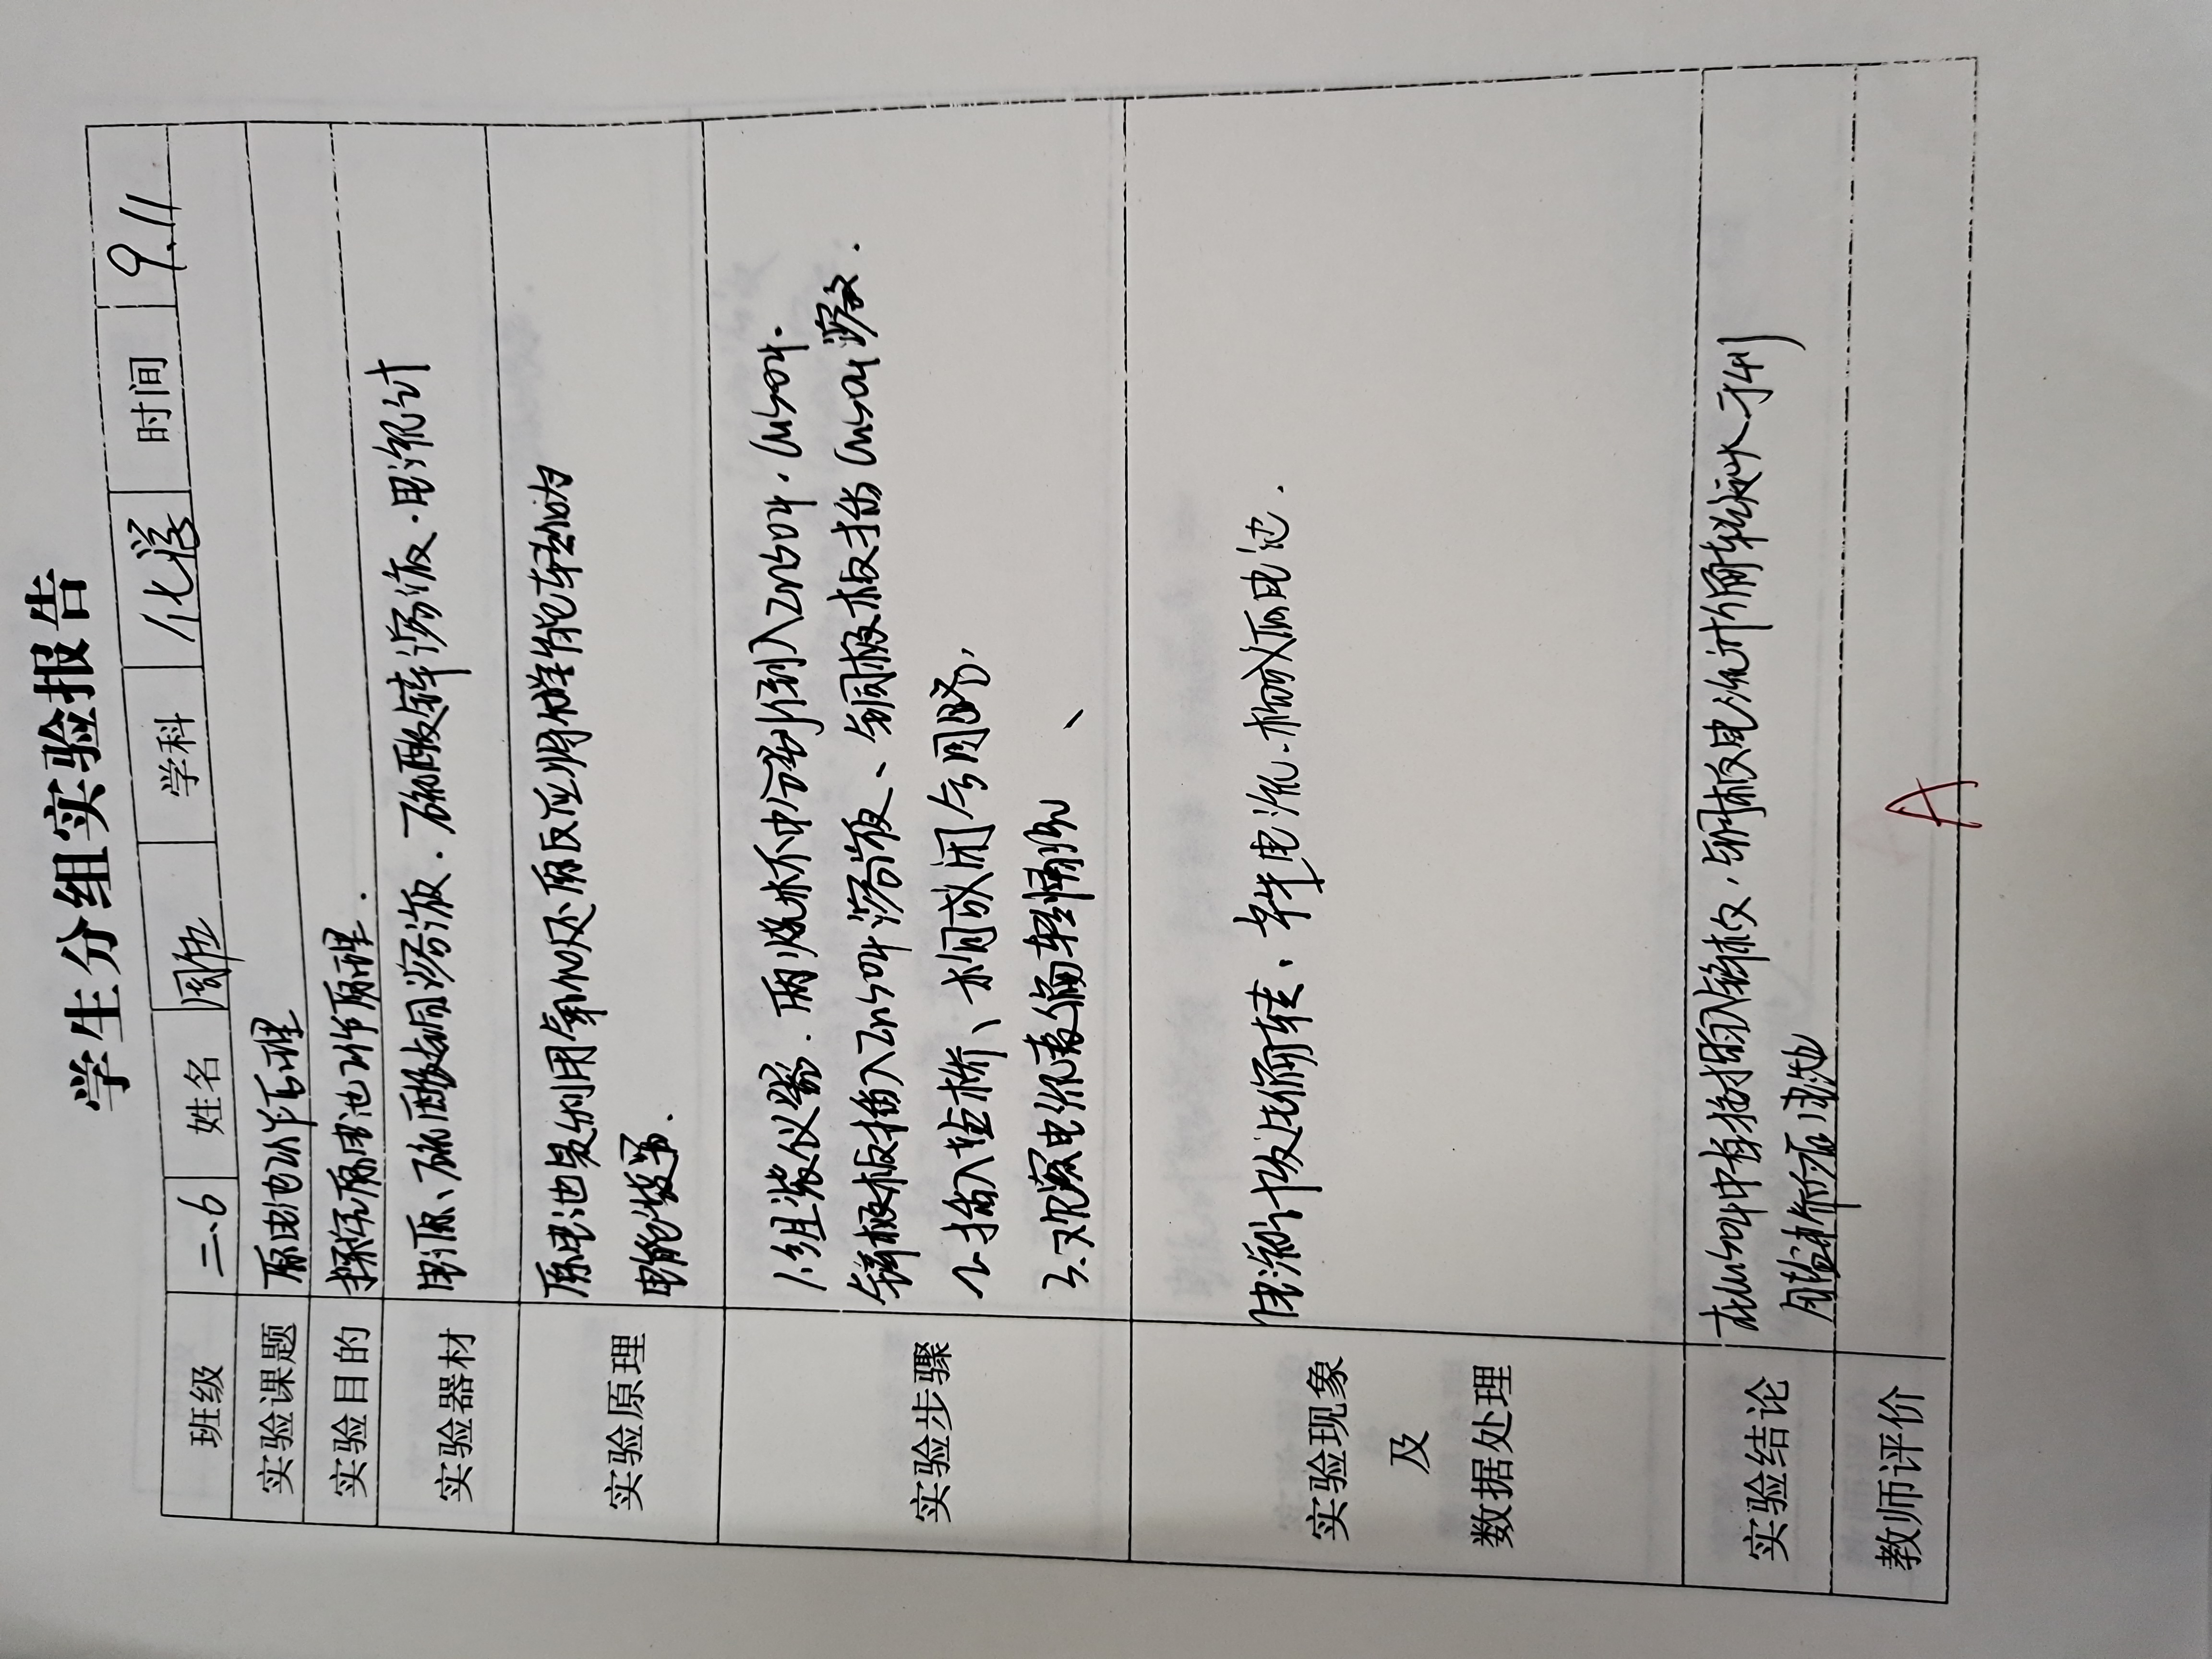 学生分组实验报告
班级 二、6 姓名 学科 化学 时间 9.11
实验课题 原电池工作原理
实验目的 探究原电池工作原理.
实验器材 电源、硫酸铜溶液.硫酸锌溶液.电流计
实验原理 原电池是利用氧化还原反应将化学能转动为
电能装置.
实验步骤 1.组装仪器.两烧杯中分别倒入ZnSO4.CuSO4.
锌极板插入ZnSO4溶液、铜极板插CuSO4溶液.
2.插入盐桥、构成闭合回路,
3.观察电流表偏转情况
实验现象
及
数据处理
电流计发生偏转、产生电流.构成原电池.
实验结论 在CuSO4中直接插入锌板,铜板电流计偏转
用盐桥
教师评价 A